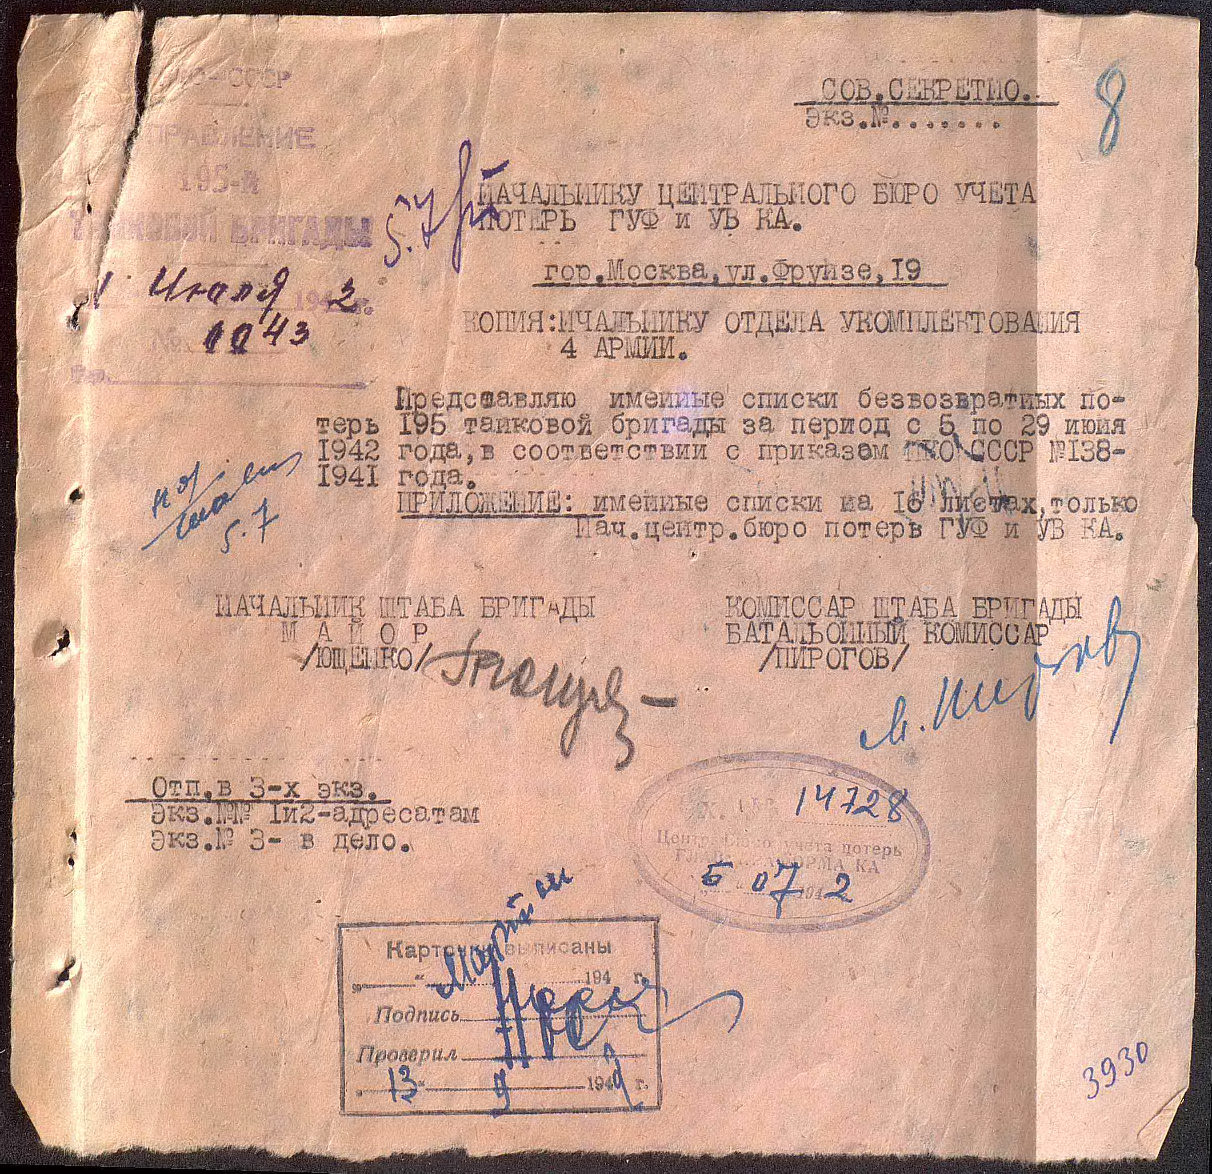 СССР
СОВ.СЕКРЕТНО.
Экз.№.......
8
195-й
ТАНКОВОЙ БРИГАДЫ
1 Июля 1942 г.
№ 0043
5.7
НАЧАЛЬНИКУ ЦЕНТРАЛЬНОГО БЮРО УЧЕТА
ПОТЕРЬ ГУФ и УВ КА.
гор.Москва,ул.Фрунзе,19
КОПИЯ:НЧАЛЬНИКУ ОТДЕЛА УКОМПЛЕКТОВАНИЯ
4 АРМИИ.
Представляю именные списки безвозвратных по-
терь 195 танковой бригады за период с 5 по 29 июня
1942 года,в соответствии с приказом НКО СССР №138-
1941 года.
ПРИЛОЖЕНИЕ: именные списки на 16 листах,только
Нач.центр.бюро потерь ГУФ и УВ КА.
5.7
НАЧАЛЬНИК ШТАБА БРИГАДЫ
МАЙОР
/ЮЩЕНКО/
КОМИССАР ШТАБА БРИГАДЫ
БАТАЛЬОННЫЙ КОМИССАР
/ПИРОГОВ/
Отп.в 3-х экз.
Экз.№№ 1и2-адресатам
Экз.№ 3- в дело.
14728
учета потерь
КА
5 07 1942
Карточки выписаны
194 г.
Подпись
Проверил
13 9 1942 г.
3930